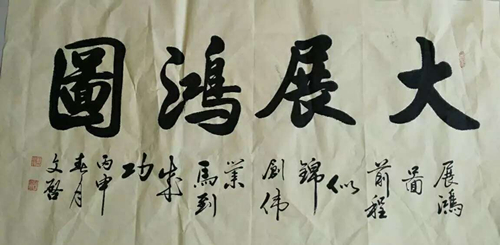 大展鸿圖
展鸿
啚
前程
似
錦
創伟
業
馬到
成
功
丙申
春月
文啓